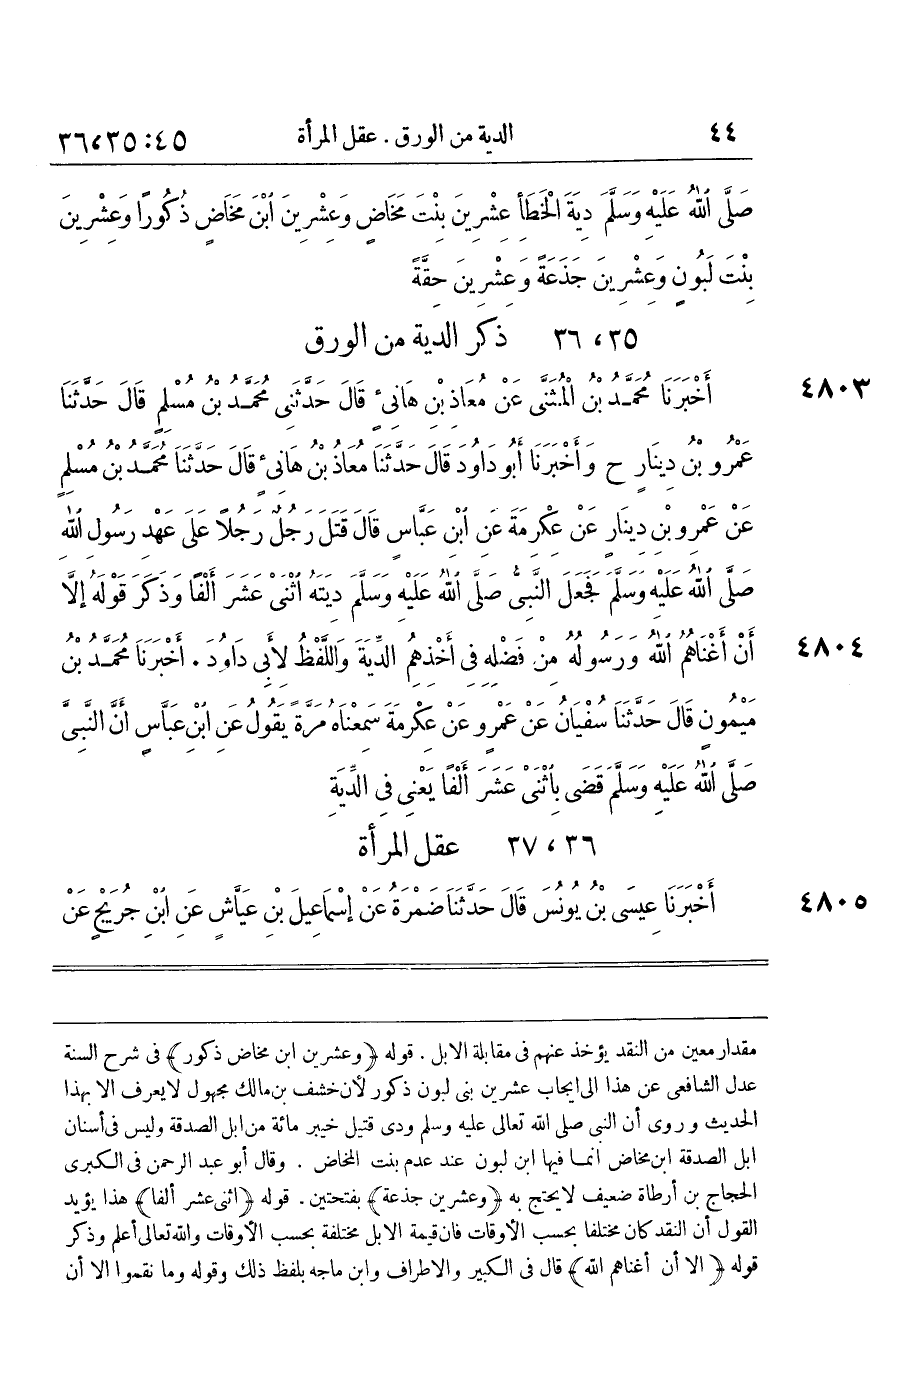 ٤٤ الدية من الورق . عقل المرأة ٤٥:٣٥،٣٦
صَلَّى ٱللهُ عَلَيْهِ وَسَلَّمَ دِيَةَ الْخَطَأِ عِشْرِينَ بِنْتَ مَخَاضٍ وَعِشْرِينَ ٱبْنَ مَخَاضٍ ذُكُورًا وَعِشْرِينَ
بِنْتَ لَبُونٍ وَعِشْرِينَ جَذَعَةً وَعِشْرِينَ حِقَّةً
٣٥، ٣٦ ذكر الدية من الورق
٤٨٠٣ أَخْبَرَنَا مُحَمَّدُ بْنُ الْمُثَنَّى عَنْ مُعَاذِ بْنِ هَانِئٍ قَالَ حَدَّثَنِى مُحَمَّدُ بْنُ مُسْلِمٍ قَالَ حَدَّثَنَا
عَمْرُو بْنُ دِينَارٍ ح وَأَخْبَرَنَا أَبُو دَاوُدَ قَالَ حَدَّثَنَا مُعَاذُ بْنُ هَانِئٍ قَالَ حَدَّثَنَا مُحَمَّدُ بْنُ مُسْلِمٍ
عَنْ عَمْرِو بْنِ دِينَارٍ عَنْ عِكْرِمَةَ عَنِ ٱبْنِ عَبَّاسٍ قَالَ قَتَلَ رَجُلٌ رَجُلًا عَلَى عَهْدِ رَسُولِ ٱللهِ
صَلَّى ٱللهُ عَلَيْهِ وَسَلَّمَ فَجَعَلَ النَّبِىُّ صَلَّى ٱللهُ عَلَيْهِ وَسَلَّمَ دِيَتَهُ ٱثْنَىْ عَشَرَ أَلْفًا وَذَكَرَ قَوْلَهُ إِلَّا
٤٨٠٤ أَنْ أَغْنَاهُمُ ٱللهُ وَرَسُولُهُ مِنْ فَضْلِهِ فِى أَخْذِهِمُ الدِّيَةَ وَاللَّفْظُ لِأَبِى دَاوُدَ . أَخْبَرَنَا مُحَمَّدُ بْنُ
مَيْمُونٍ قَالَ حَدَّثَنَا سُفْيَانُ عَنْ عَمْرٍو عَنْ عِكْرِمَةَ سَمِعْنَاهُ مَرَّةً يَقُولُ عَنِ ابْنِ عَبَّاسٍ أَنَّ النَّبِىَّ
صَلَّى ٱللهُ عَلَيْهِ وَسَلَّمَ قَضَى بِاثْنَىْ عَشَرَ أَلْفًا يَعْنِى فِى الدِّيَةِ
٣٦، ٣٧ عقل المرأة
٤٨٠٥ أَخْبَرَنَا عِيسَى بْنُ يُونُسَ قَالَ حَدَّثَنَا ضَمْرَةُ عَنْ إِسْمَاعِيلَ بْنِ عَيَّاشٍ عَنِ ابْنِ جُرَيْجٍ عَنْ
مقدار معين من النقد يؤخذ عنهم فى مقابلة الابل . قوله ﴿وعشرين ابن مخاض ذكور﴾ فى شرح السنة
عدل الشافعى عن هذا الى ايجاب عشرين بنى لبون ذكور لأن خشف بن مالك مجهول لا يعرف الا بهذا
الحديث وروى أن النبى صلى الله تعالى عليه وسلم ودى قتيل خيبر مائة من ابل الصدقة وليس فى أسنان
ابل الصدقة ابن مخاض انما فيها ابن لبون عند عدم بنت المخاض . وقال أبو عبد الرحمن فى الكبرى
الحجاج بن أرطاة ضعيف لا يحتج به ﴿وعشرين جذعة﴾ بفتحتين . قوله ﴿اثنى عشر ألفا﴾ هذا يؤيد
القول أن النقد كان مختلفا بحسب الأوقات فان قيمة الابل مختلفة بحسب الأوقات والله تعالى أعلم وذكر
قوله ﴿الا أن أغناهم الله﴾ قال فى الكبير والاطراف وابن ماجه بلفظ ذلك وقوله وما نقموا الا أن